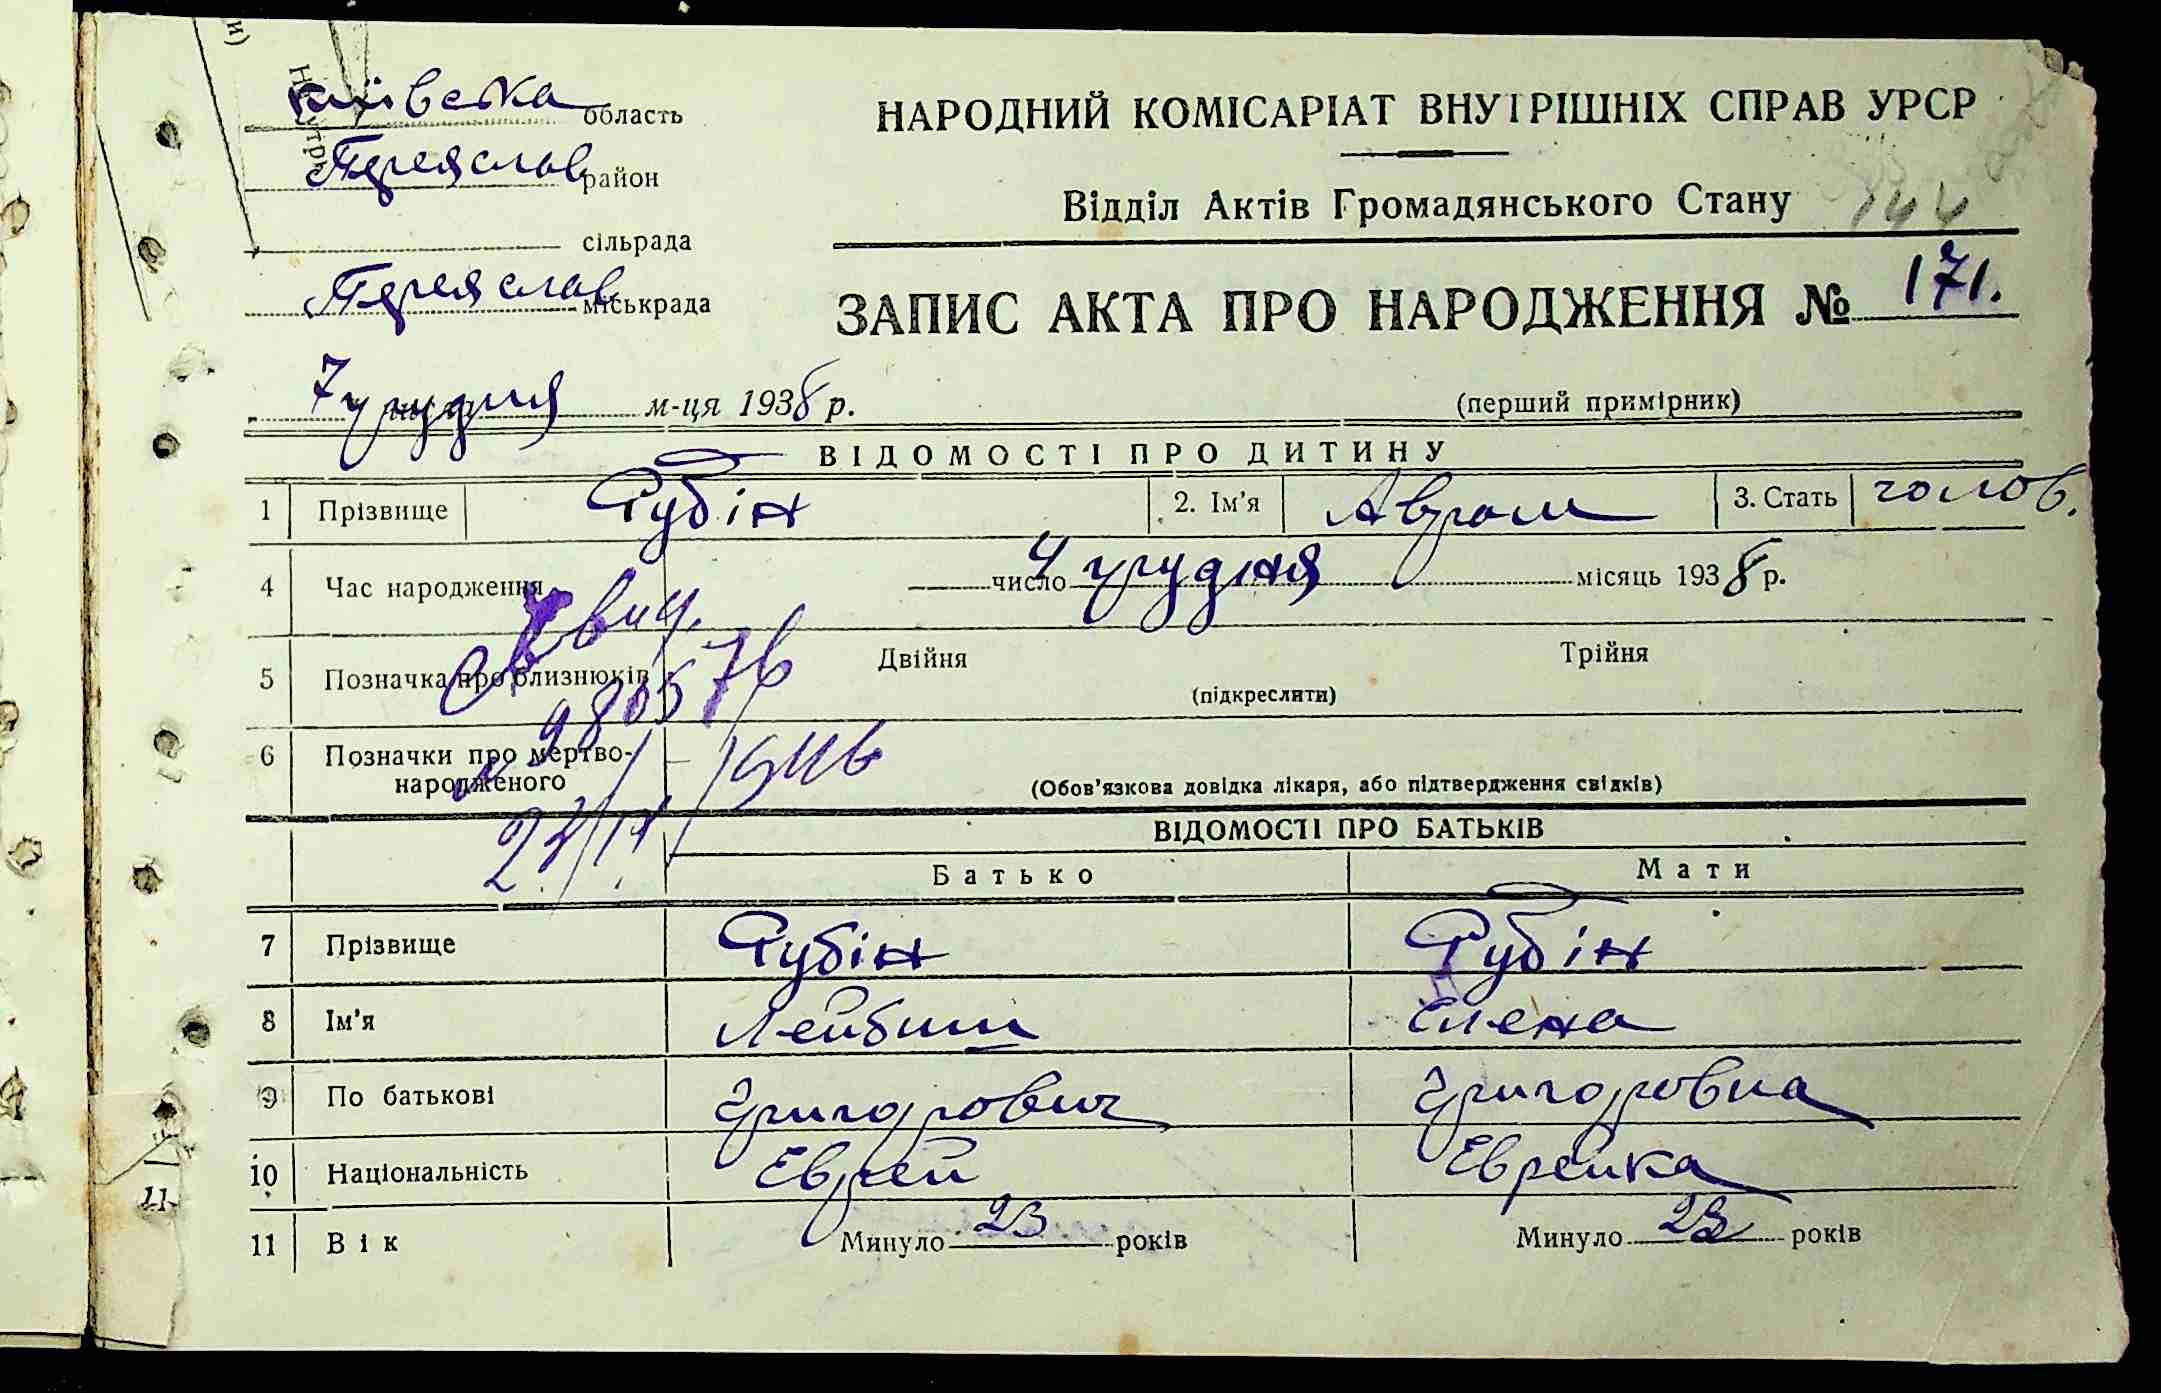 Київська область
Переяслав район
сільрада
Переяслав міськрада
НАРОДНИЙ КОМІСАРІАТ ВНУТРІШНІХ СПРАВ УРСР
Відділ Актів Громадянського Стану
144
ЗАПИС АКТА ПРО НАРОДЖЕННЯ № 171.
7 грудня м-ця 1938 р.
(перший примірник)
ВІДОМОСТІ ПРО ДИТИНУ
1 Прізвище Рубін 2. Ім'я Аврам 3. Стать чолов.
4 Час народження 4 число грудня місяць 1938 р.
5 Позначка про близнюків Двійня Трійня
(підкреслити)
6 Позначки про мертво-
народженого
(Обов'язкова довідка лікаря, або підтвердження свідків)
ВІДОМОСТІ ПРО БАТЬКІВ
Батько Мати
7 Прізвище Рубін Рубін
8 Ім'я Лейбиш Елена
9 По батькові Григорович Григоровна
10 Національність Еврей Еврейка
11 Вік Минуло 23 років Минуло 23 років